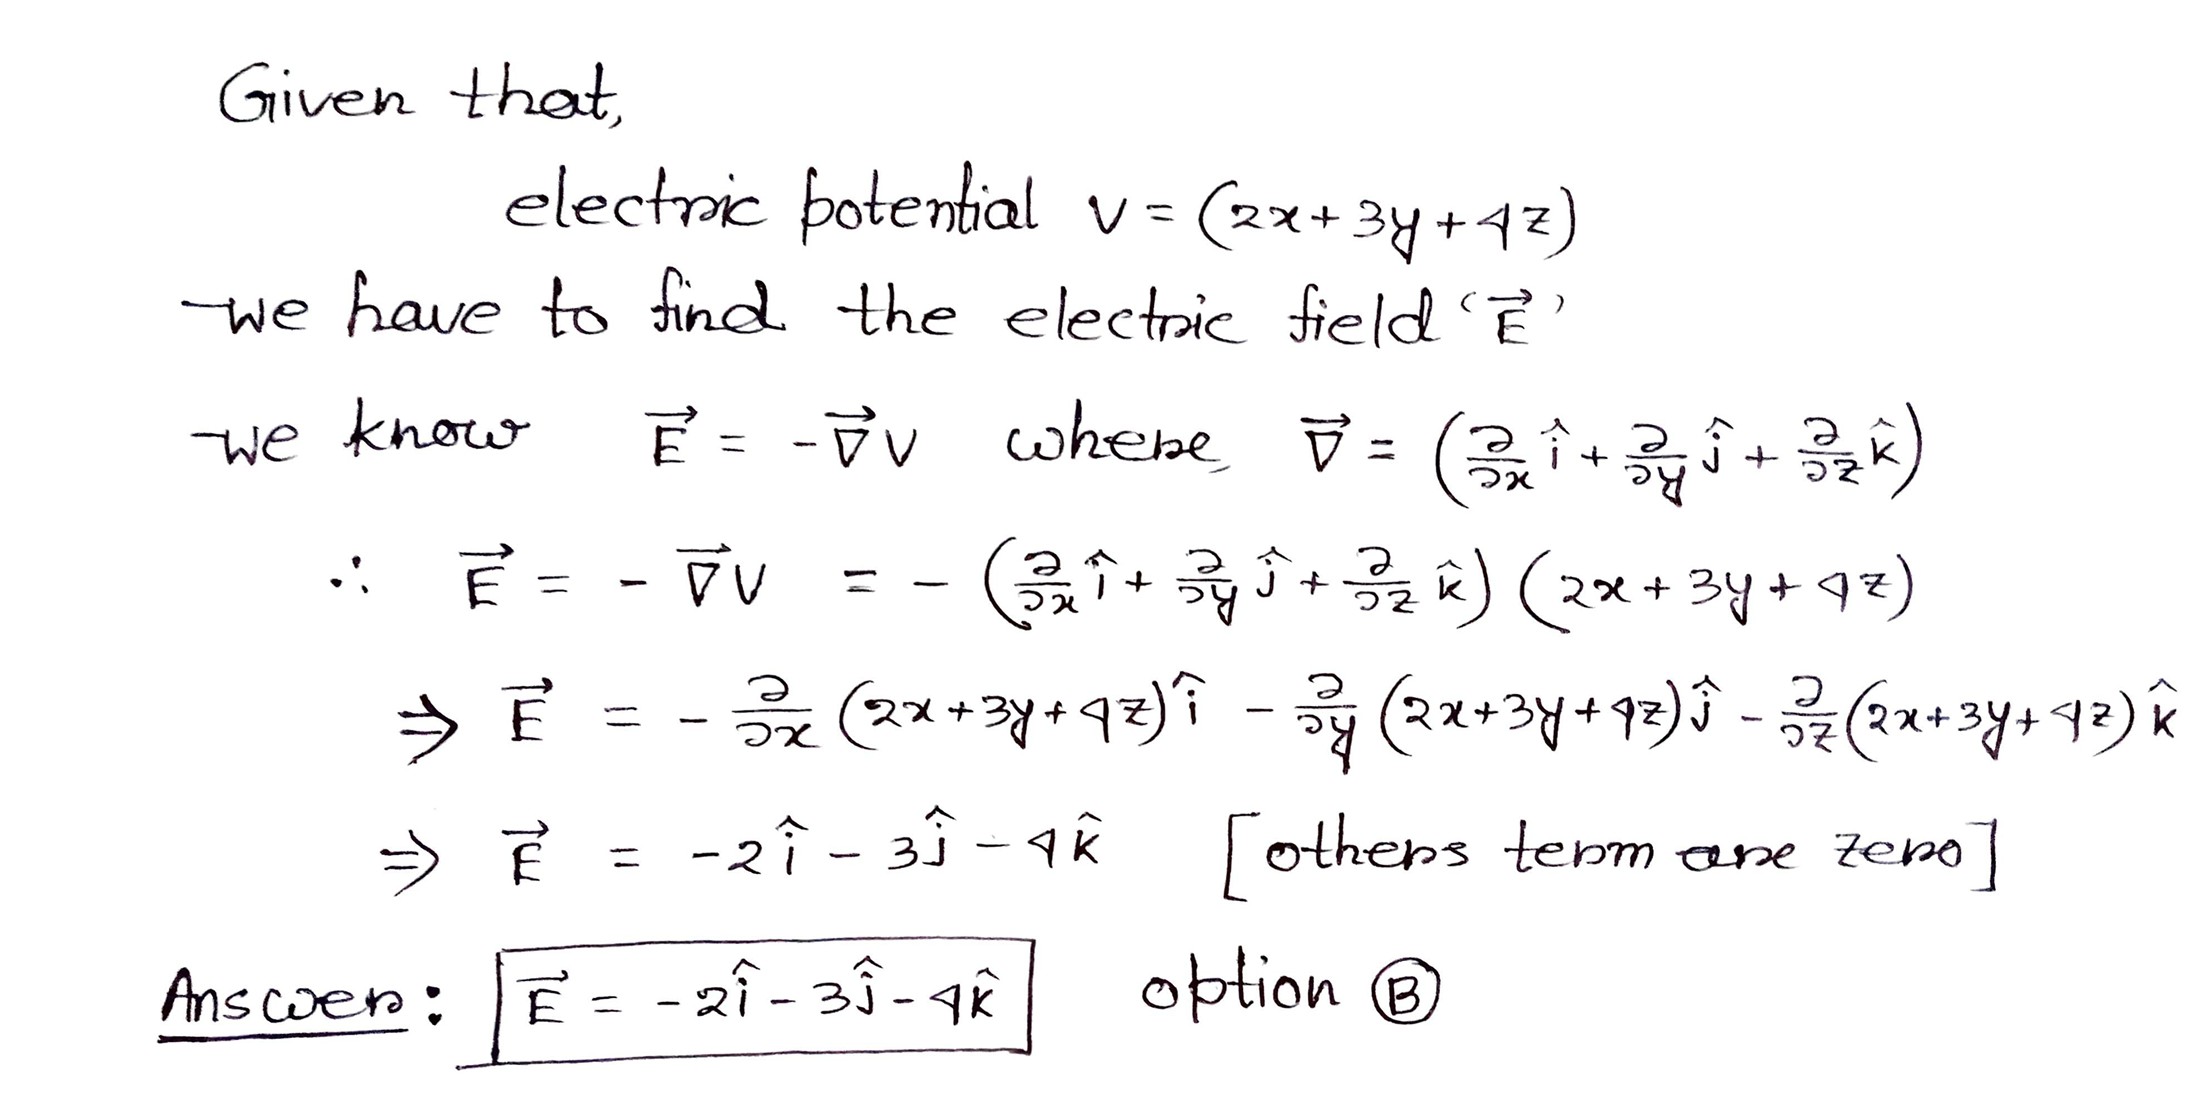 Given that,
electric potential V = (2x + 3y + 4z)
we have to find the electric field '$\vec{E}$'
we know $\vec{E} = -\vec{\nabla} V$ where, $\vec{\nabla} = \left(\frac{\partial}{\partial x}\hat{i} + \frac{\partial}{\partial y}\hat{j} + \frac{\partial}{\partial z}\hat{k}\right)$
∴ $\vec{E} = -\vec{\nabla} V = -\left(\frac{\partial}{\partial x}\hat{i} + \frac{\partial}{\partial y}\hat{j} + \frac{\partial}{\partial z}\hat{k}\right)(2x + 3y + 4z)$
⇒ $\vec{E} = -\frac{\partial}{\partial x}(2x+3y+4z)\hat{i} - \frac{\partial}{\partial y}(2x+3y+4z)\hat{j} - \frac{\partial}{\partial z}(2x+3y+4z)\hat{k}$
⇒ $\vec{E} = -2\hat{i} - 3\hat{j} - 4\hat{k}$ [others term are zero]
Answer: $\vec{E} = -2\hat{i} - 3\hat{j} - 4\hat{k}$ option Ⓑ